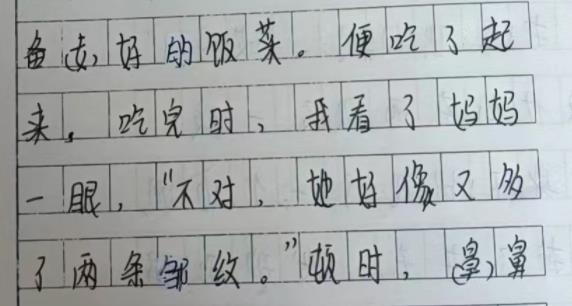 备好的饭菜。便吃了起
来，吃完时，我看了妈妈
一眼，“不对，她好像又多
了两条邹纹。”顿时，鼻